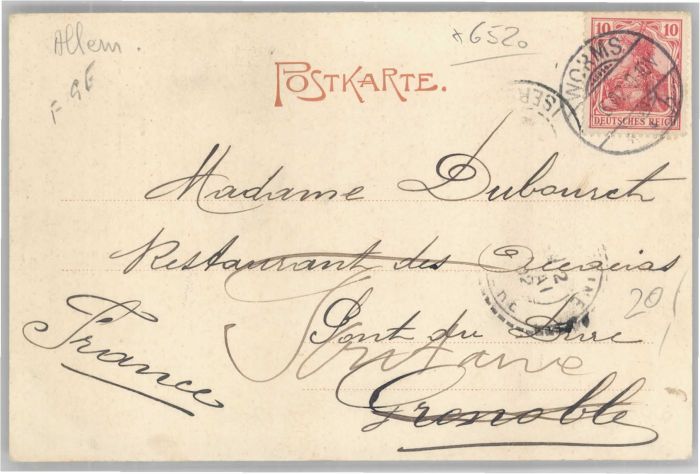 Allem.
F GE
*6520
POSTKARTE.
10 10
DEUTSCHES REICH
WORMS
ISER
Madame Dubourch
Restaurant des
20
Pont du
Fontaine
France
Grenoble